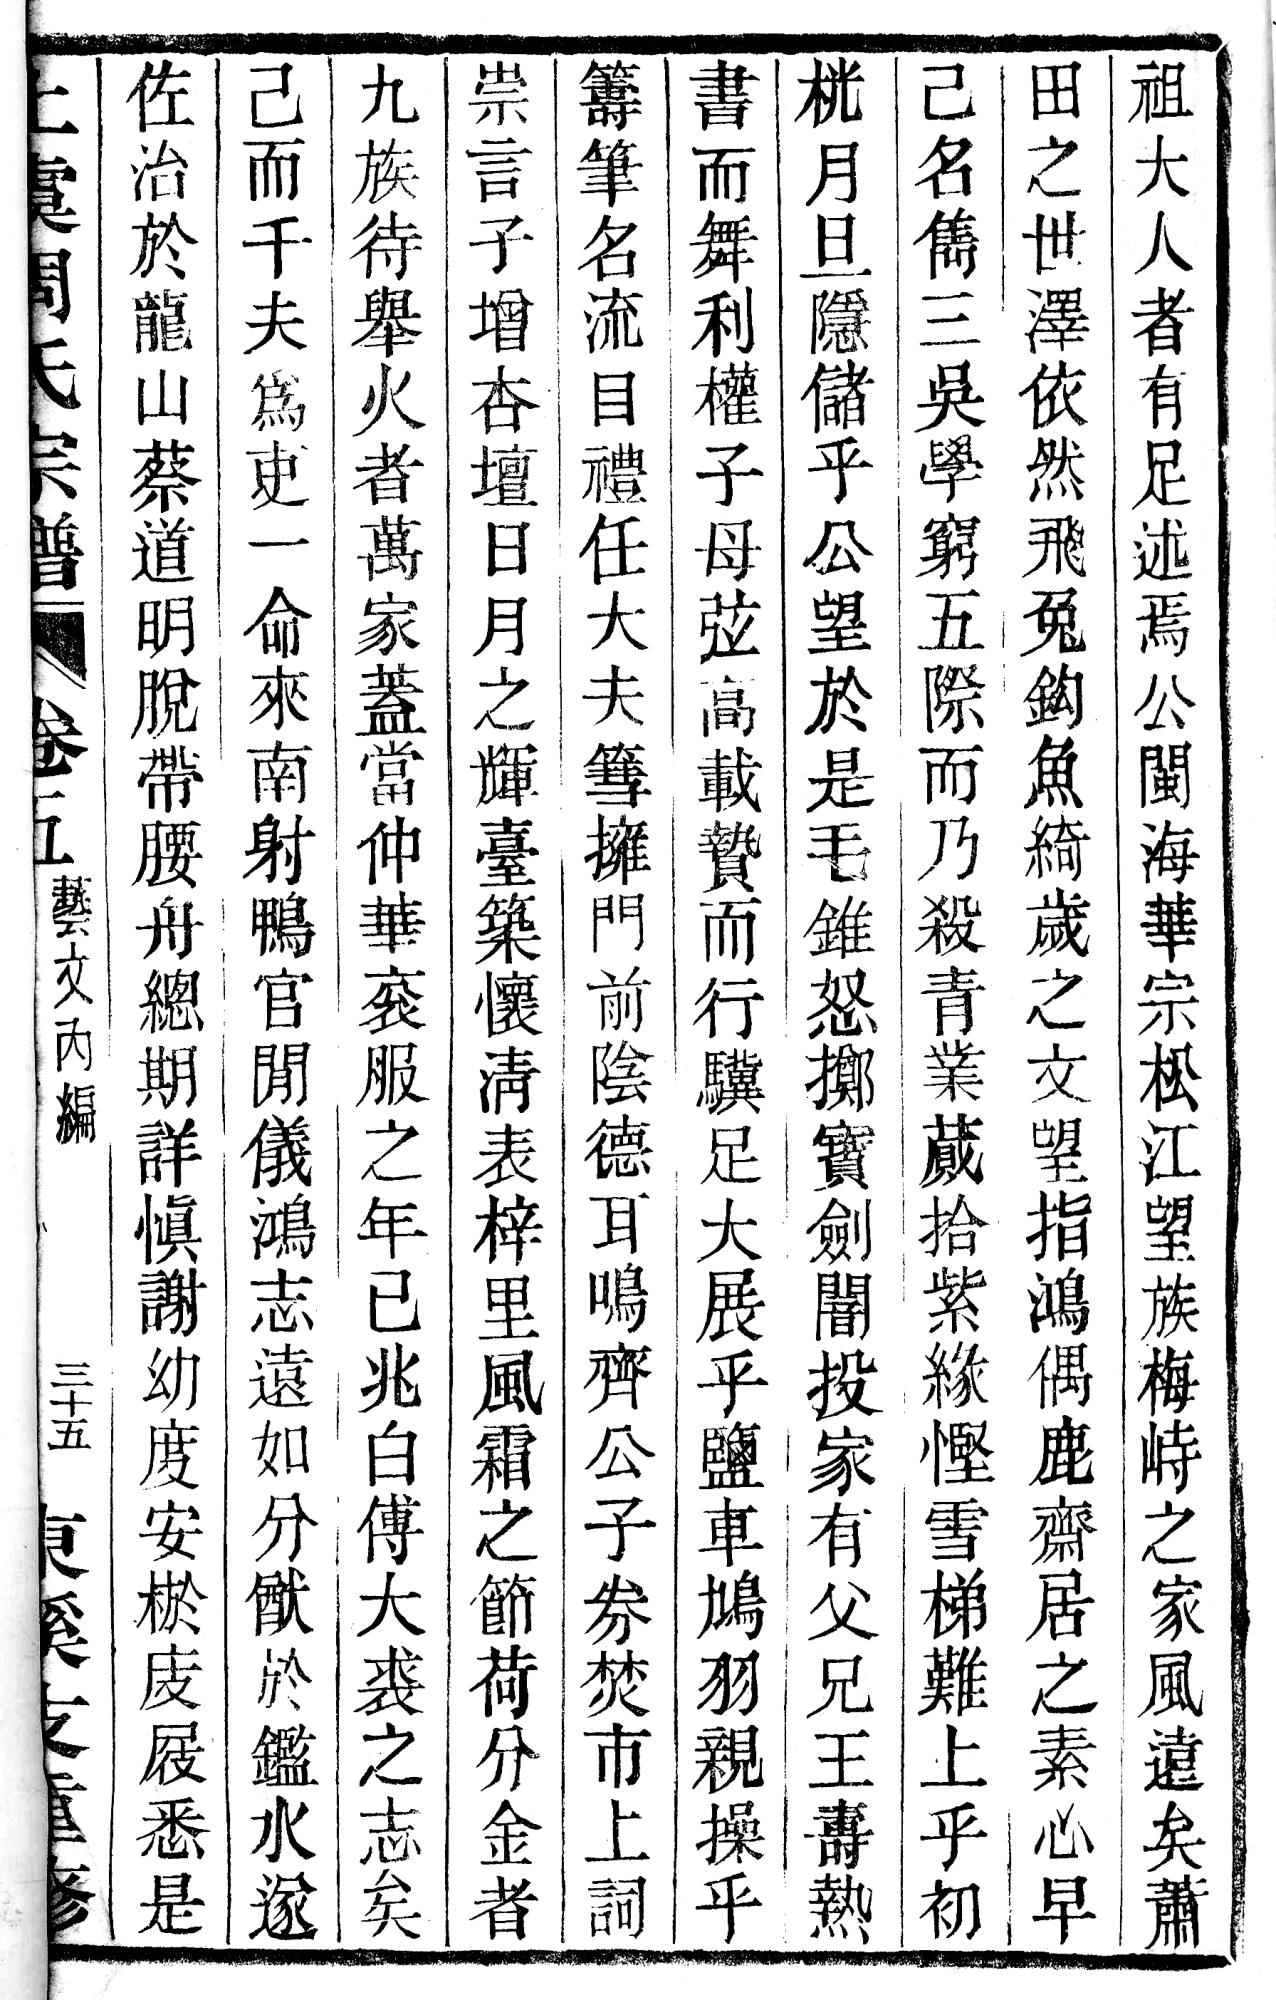 祖大人者有足述焉公閩海華宗松江望族梅峙之家風遠矣蕭
田之世澤依然飛兔鈎魚綺歲之文望指鴻偶鹿齋居之素心早
己名雋三吳學窮五際而乃殺青業蕆拾紫緣慳雪梯難上乎初
桄月旦隱儲乎公望於是毛錐怒擲寶劍闇投家有父兄王壽熱
書而舞利權子母弦高載贄而行驥足大展乎鹽車鳩羽親操乎
籌筆名流目禮任大夫篲擁門前陰德耳鳴齊公子券焚市上詞
崇言子增杏壇日月之輝臺築懷清表梓里風霜之節荷分金者
九族待舉火者萬家蓋當仲華衮服之年已兆白傅大裘之志矣
己而千夫爲吏一命來南射鴨官閒儀鴻志遠如分猷於鑑水遂
佐治於龍山蔡道明脫帶腰舟總期詳愼謝幼度安棜庋屐悉是
上虞周氏宗譜 卷五 藝文內編 三十五 東溪支重修